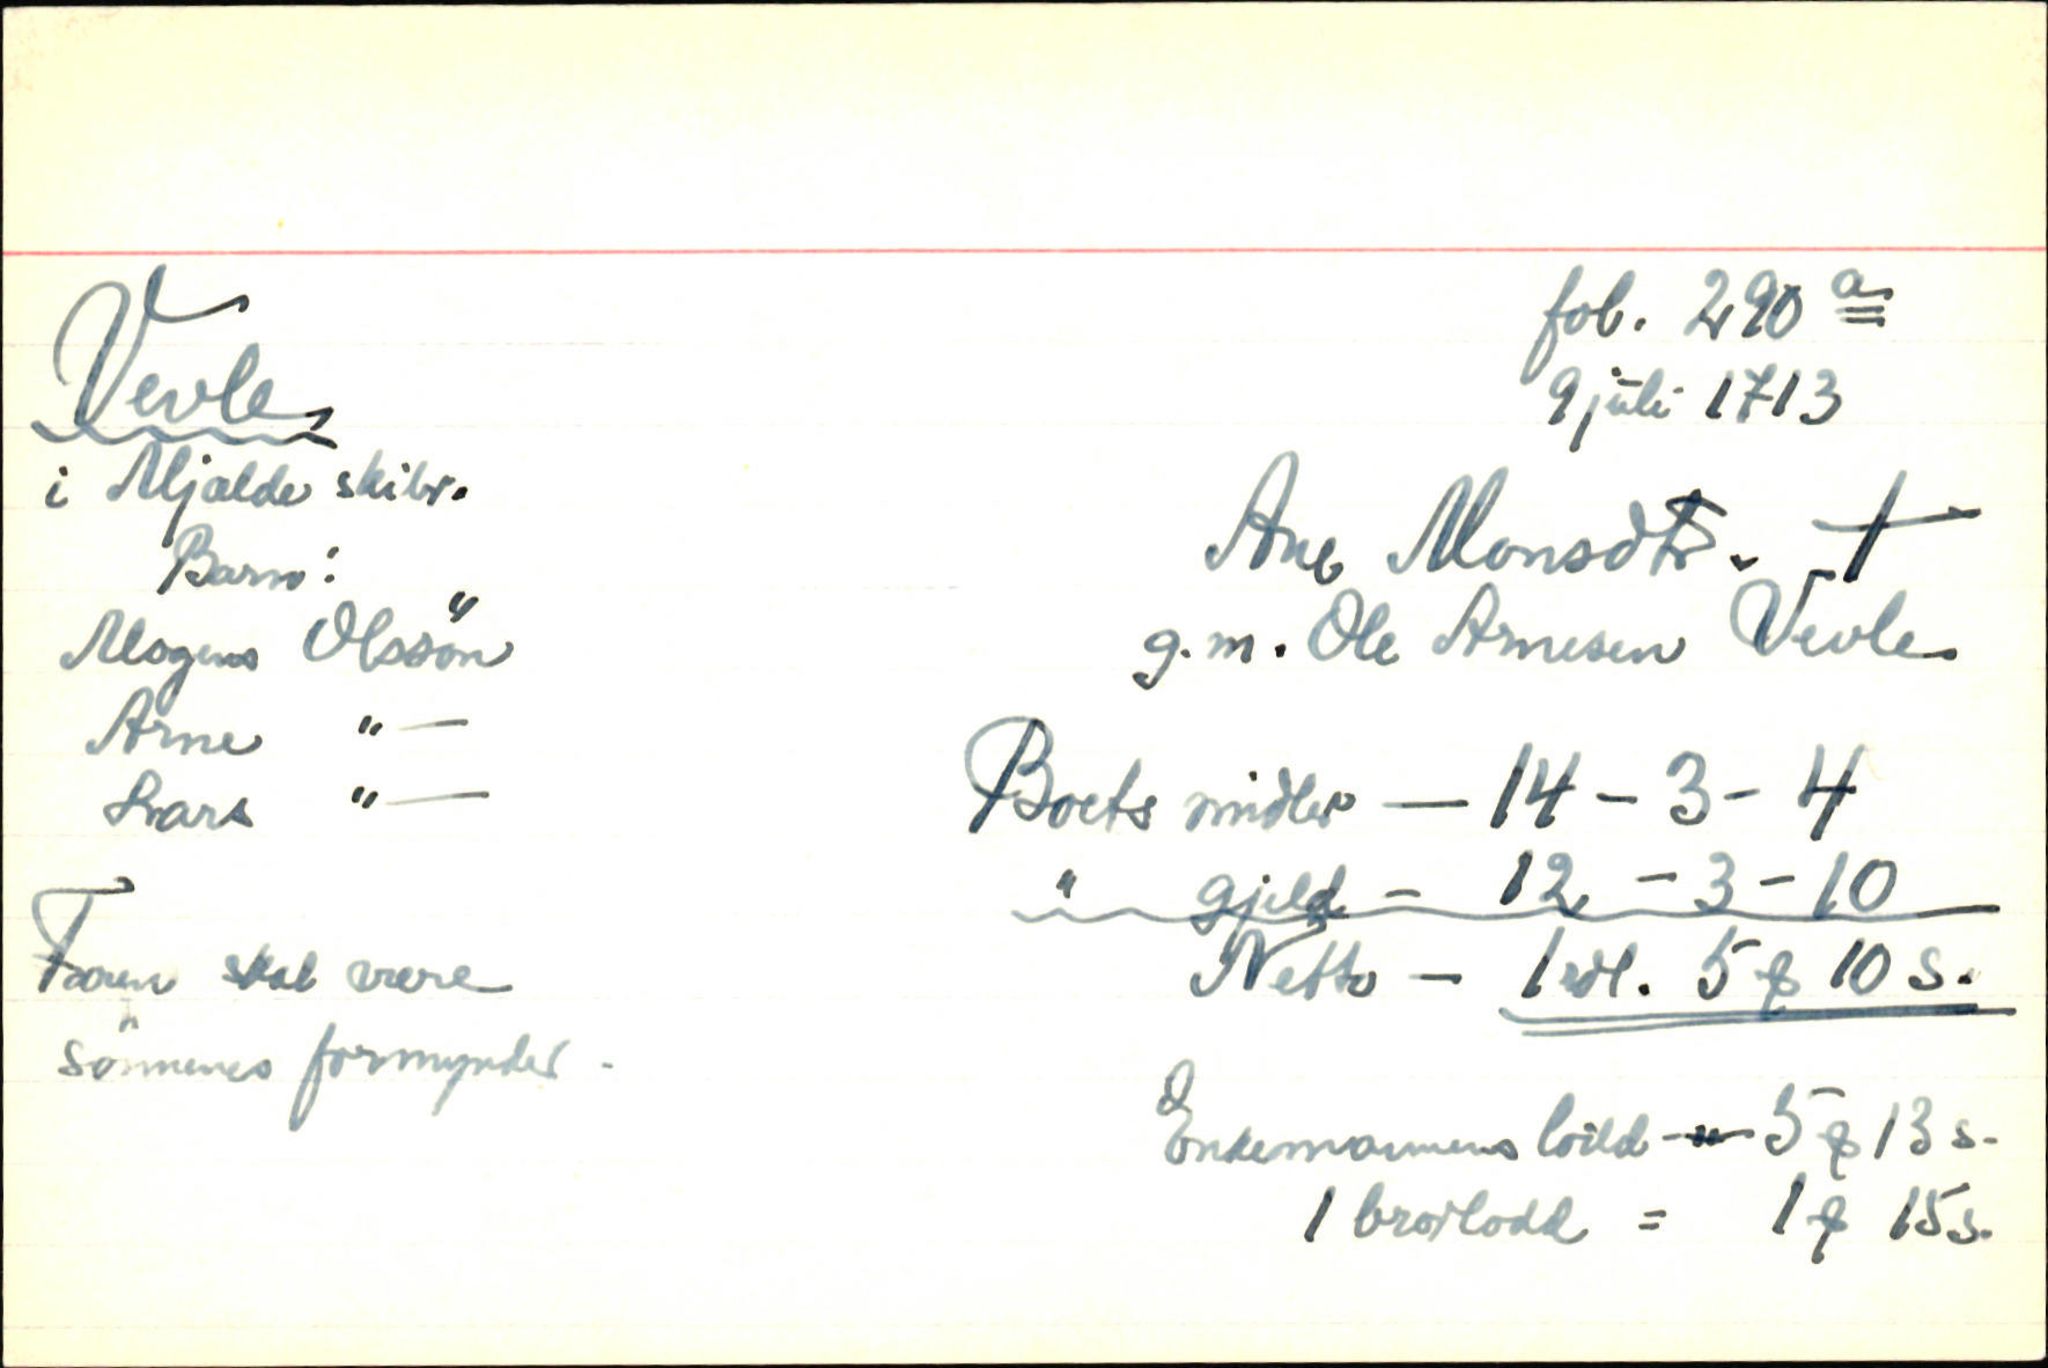 Vevle
i Mjælde skibr.
Barn:
Mogens Olssön
Arne " —
Lars " —
Faren skal være
sönnenes formynder.
fol. 290 a
9 juli 1713
Ane Monsdtr. †
g.m. Ole Arnesen Vevle
Boets midler — 14 - 3 - 4
" gjeld - 12 - 3 - 10
Netto - 1 rdl. 5 ꝑ 10 s.
Enkemannens lodd - 5 ꝑ 13 s.
1 brorlodd = 1 ꝑ 15 s.